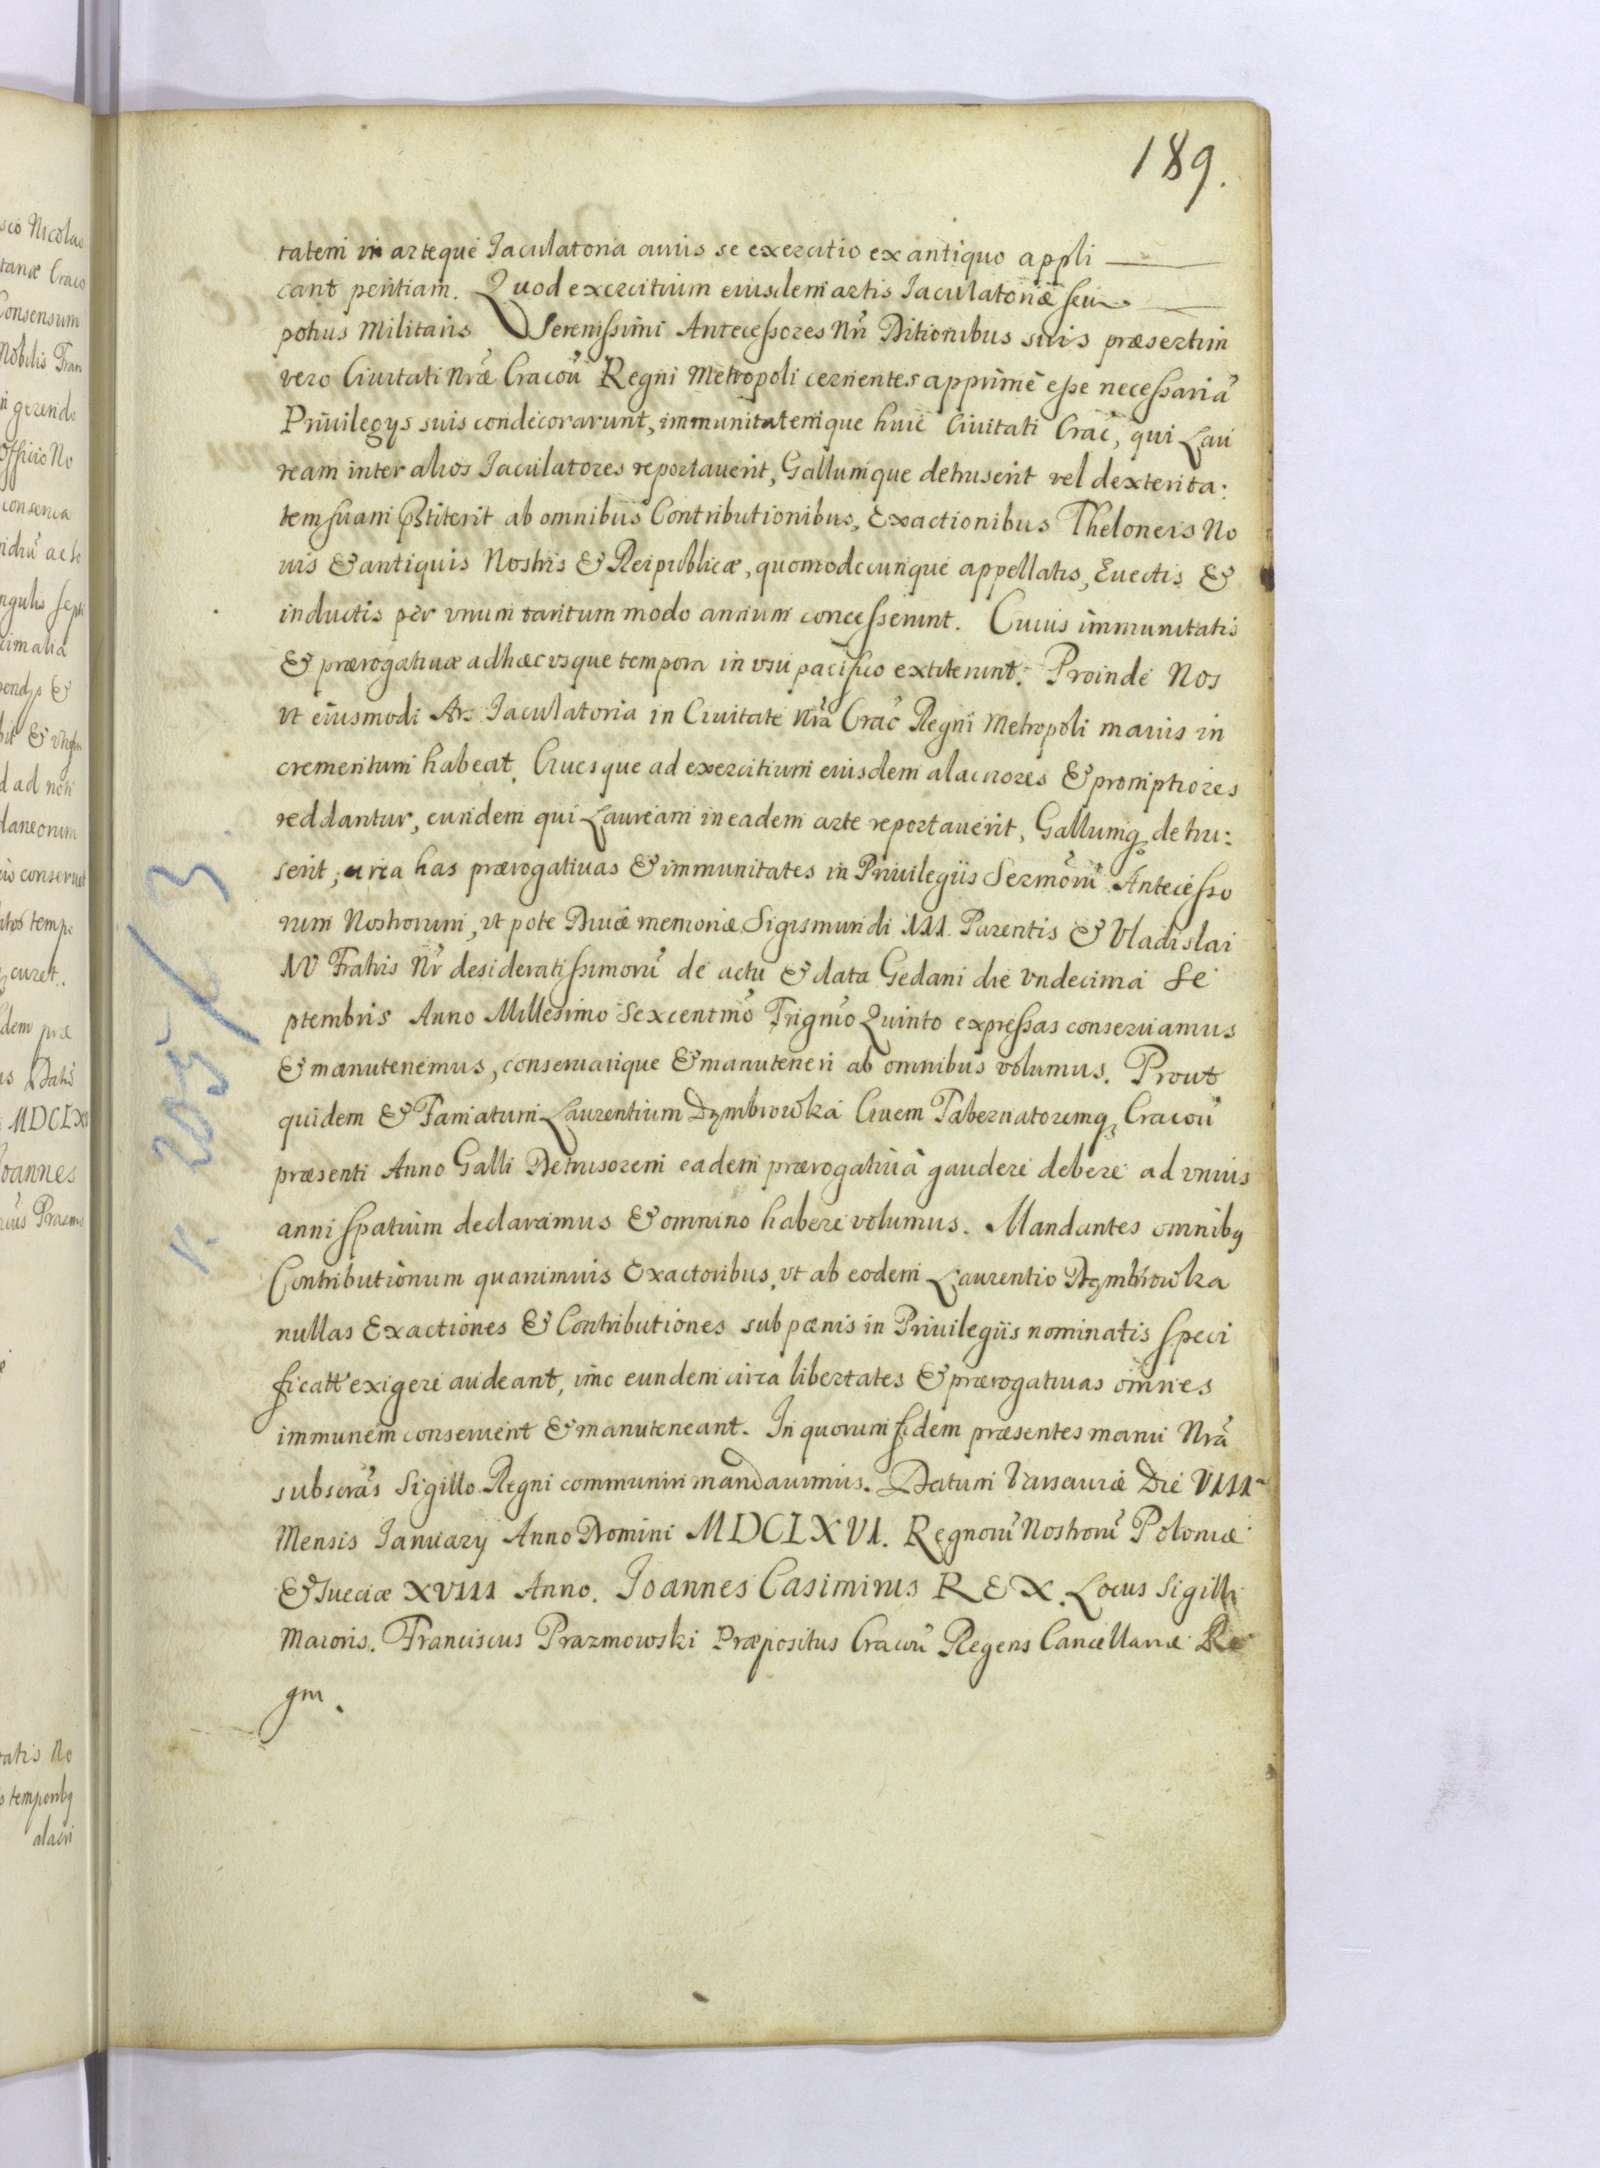 189.
tatem in arteque Iaculatoria ciuis se exercitio ex antiquo appli
cant peritiam. Quod exercitium eiusdem artis Iaculatoriæ seu
potius Militaris Serenissimi Antecessores Nri Ditionibus suis præsertim
vero Ciuitati Nræ Cracou Regni Metropoli cernentes apprime esse necessariã
Priuilegys suis condecorarunt, immunitatemque huic Ciuitati Crac, qui Lau
ream inter alios Iaculatores reportauerit, Gallumque detruserit vel dexterita:
tem suam pstiterit ab omnibus Contributionibus, Exactionibus Theloneis No
uis & antiquis Nostris & Reipublicæ, quomodocunque appellatis, Euectis &
inductis per vnum tantum modo annum concesserunt. Cuius immunitatis
& prærogatiuæ adhæc vsque tempora in vsu pacifico extiterunt. Proinde Nos
vt eiusmodi Ars Iaculatoria in Ciuitate Nra Crac Regni Metropoli maius in
crementum habeat, Ciuesque ad exercitium eiusdem alacriores & promptiores
reddantur, eundem qui Lauream in eadem arte reportauerit, Gallumq detru:
serit, circa has prærogatiuas & immunitates in Priuilegiis Sermorũ Antecesso
rum Nostrorum, vt pote Diuæ memoriæ Sigismundi III Parentis & Vladislai
IV Fratris Nr desideratissimorũ de actu & data Gedani die vndecima Se
ptembris Anno Millesimo Sexcentmo Trigmo Quinto expressas conseruamus
& manutenemus, conseruarique & manuteneri ab omnibus volumus. Prout
quidem & Famatum Laurentium Dzmbrowka Ciuem Tabernatoremq Cracou
præsenti Anno Galli Detrusorem eadem prærogatiua gaudere debere ad vnius
anni spatium declaramus & omnino habere volumus. Mandantes omnibq
Contributionum quarumuis Exactoribus, vt ab eodem Laurentio Dzmbrowka
nullas Exactiones & Contributiones sub pœnis in Priuilegiis nominatis speci
ficatt exigere audeant, imo eundem circa libertates & prærogatiuas omnes
immunem conseruent & manuteneant. In quorum fidem præsentes manu Nrã
subscras Sigillo Regni communiri mandauimus. Datum Varsauiæ Die VIII
Mensis Ianuary Anno Domini MDCLXVI. Regnorũ Nostrorũ Poloniæ
& Sueciæ XVIII Anno. Ioannes Casimirus REX. Locus Sigilli
Maioris. Franciscus Prazmowski Præpositus Cracou Regens Cancellariæ Re
gni.